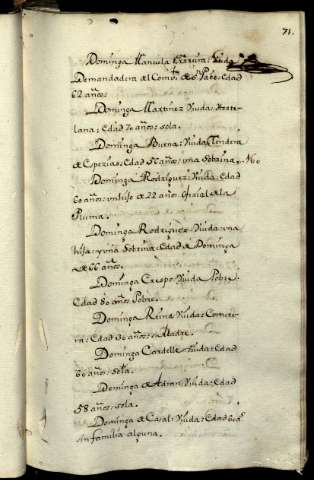 71.
Dominga Manuela Viuda
Demandadera del Comb.to de Sn Edad
62 años.
Dominga Martinez Viuda
lana; Edad 70 años, sola.
Dominga Buena; Viuda; Tendera
de Espezias; Edad 50 años; una Sobrina.
Dominga Rodriguez Viuda; Edad
60 años; un hijo de 22 años, ofizial de la
Pluma.
Dominga Rodriguez Viuda; una
hija; y una Sobrina; Edad de Dominga
de 66 años.
Dominga Crespo Viuda Pobre;
Edad 80 años Pobre.
Dominga Reina Viuda;
Edad 30 años;
Dominga Cardelle Viuda; Edad
60 años; sola.
Dominga de Adran Viuda; Edad
58 años; sola.
Dominga de Casal; Viuda; Edad 60 as
sin familia alguna.